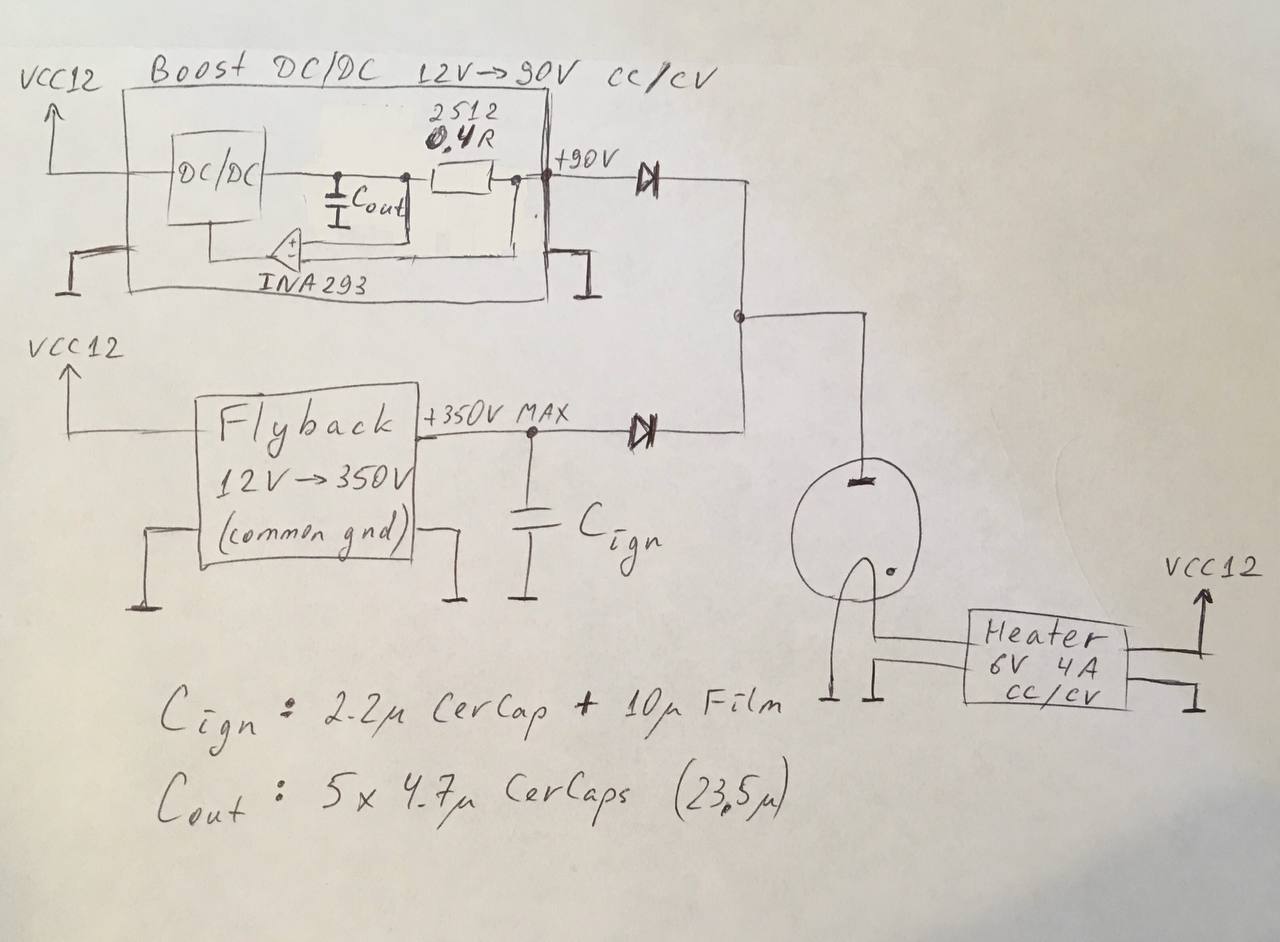 Boost DC/DC 12V→90V CC/CV
VCC12
2512
0.4R
DC/DC
+90V
Cout
+
-
INA293
VCC12
Flyback
12V→350V
(common gnd)
+350V MAX
Cign
VCC12
Heater
6V 4A
CC/CV
Cign : 2.2µ CerCap + 10µ Film
Cout : 5x 4.7µ CerCaps (23.5µ)